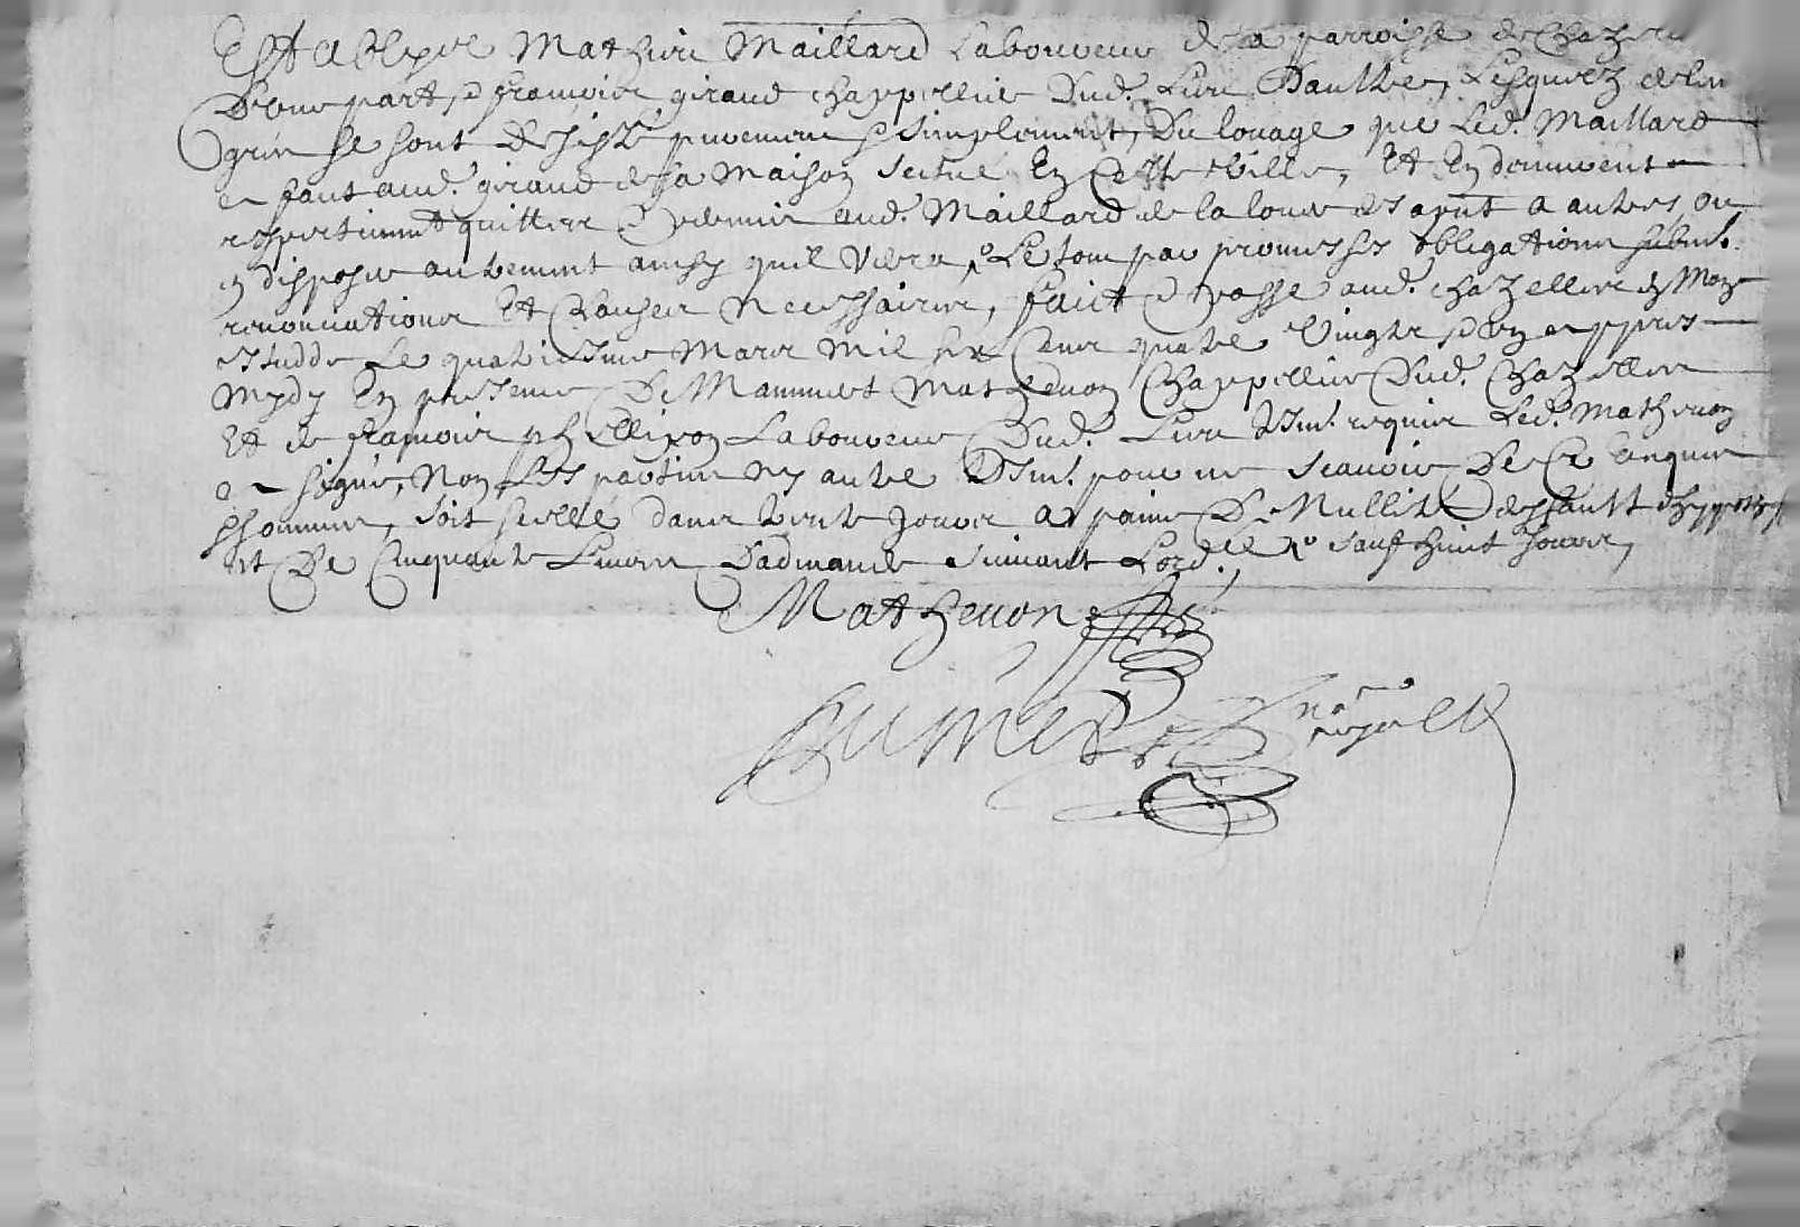 Establyes Mathieu Maillard Laboureur de la parroisse de Chazelles
D'une part, & françois giraud chappellier Dud. Lieu D'aultre, Lesquelz de leur
gré se sont desisté purement & simplement, Du louage que Led. Maillard
a faict aud. giraud de sa Maison scitué En Cette Ville, Et En demeurent
respectivement quittes & permis aud. Maillard de la louer des a pnt a autres, ou
en disposer autrement ainsy quil verra, Le tout par promesses obligations submi.
renonciations Et Clauses Necessaires, faict & passe aud. chazelles en Mon
estudde Le quatriesme Mars Mil six Cens quatre Vingts & un appres
Mydy En presence De Mammert Mathevon Chappellier Dud. Chazelles
Et de françois Laboureur Dud. Lieu tesm. requis Led. Mathevon
a signé, Non Les parties ny autre tesm. pour ne scavoir De Ce Enquis
& sommes, soit scellé dans trente Jours a paine De Nullité
et De Cinquante Livres D'admande suivant Lord. sauf huict Jours,
Mathevon